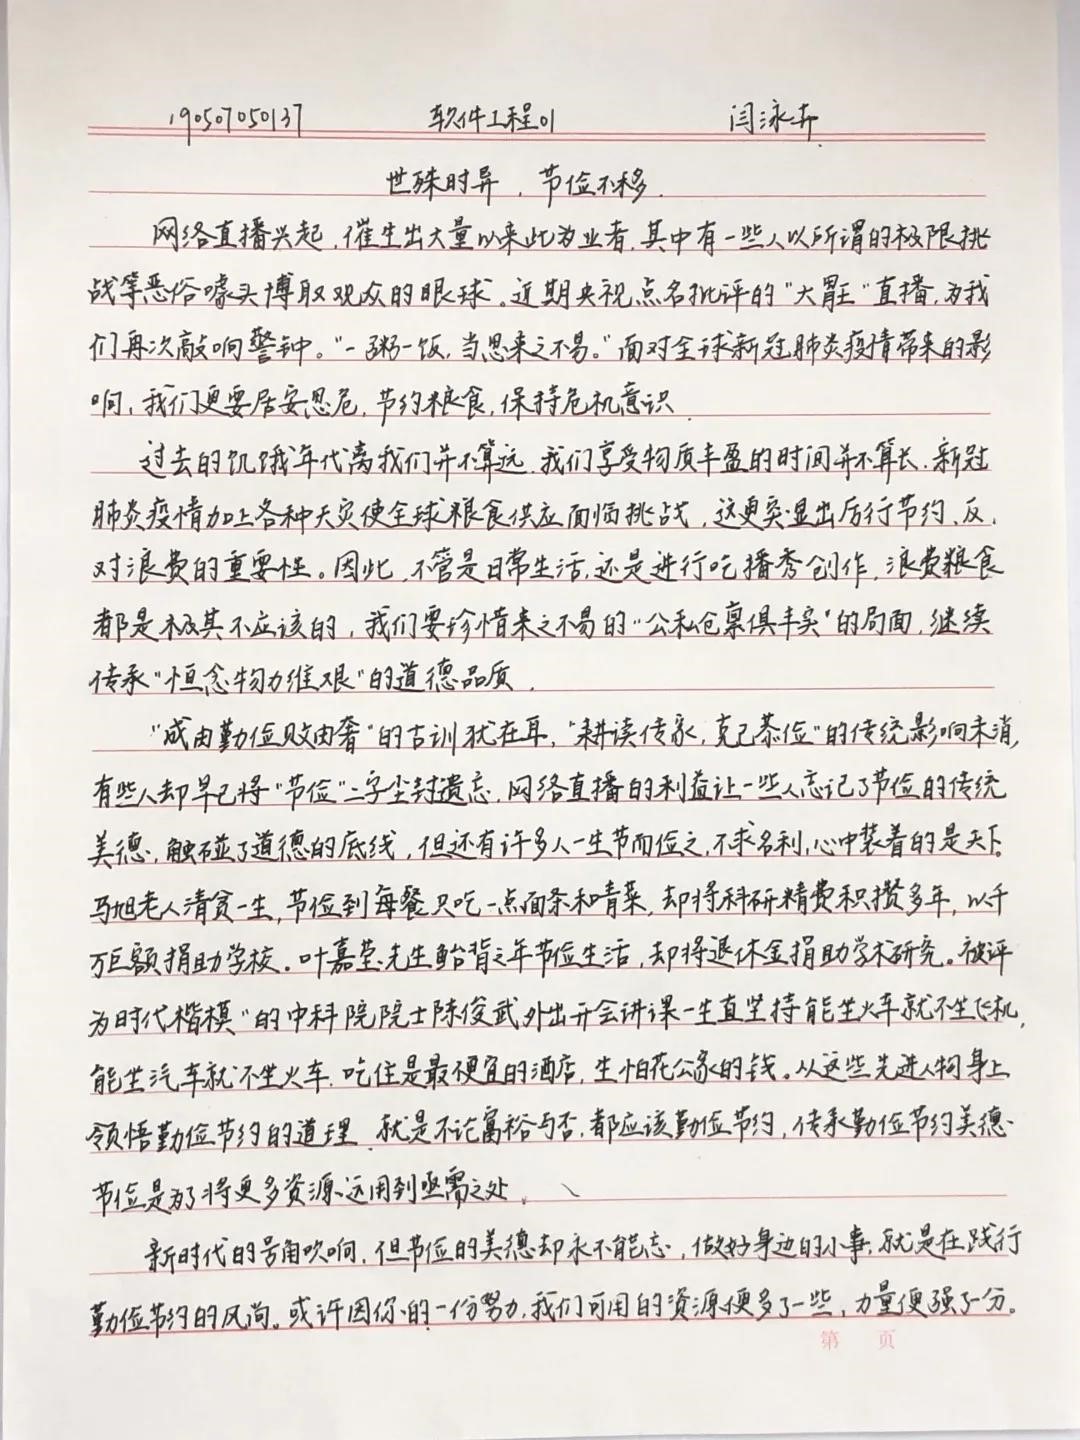 190507050137 软件工程01 闫泳卉
世殊时异,节俭不移.
网络直播兴起,催生出大量以来此为业者,其中有一些人以所谓的极限挑
战等恶俗噱头博取观众的眼球。近期央视点名批评的"大胃王"直播,为我
们再次敲响警钟。"一粥一饭,当思来之不易。"面对全球新冠肺炎疫情带来的影
响,我们更要居安思危,节约粮食,保持危机意识.
过去的饥饿年代离我们并不算远,我们享受物质丰盈的时间并不算长.新冠
肺炎疫情加上各种天灾使全球粮食供应面临挑战,这更突显出厉行节约、反
对浪费的重要性。因此,不管是日常生活,还是进行吃播秀创作,浪费粮食
都是极其不应该的,我们要珍惜来之不易的"公私仓禀俱丰实"的局面,继续
传承"恒念物力维艰"的道德品质.
"成由勤俭败由奢"的古训犹在耳,"耕读传家,克己恭俭"的传统影响未消,
有些人却早已将"节俭"二字尘封遗忘.网络直播的利益让一些人忘记了节俭的传统
美德,触碰了道德的底线,但还有许多人一生节而俭之,不求名利,心中装着的是天下.
马旭老人清贫一生,节俭到每餐只吃一点面条和青菜,却将科研精费积攒多年,以千
万巨额捐助学校。叶嘉莹先生鲐背之年节俭生活,却将退休金捐助学术研究。被评
为时代楷模"的中科院院士陈俊武外出开会讲课一生直坚持能坐火车就不坐飞机,
能坐汽车就不坐火车.吃住是最便宜的酒店,生怕花公家的钱。从这些先进人物身上
领悟勤俭节约的道理 就是不论富裕与否,都应该勤俭节约,传承勤俭节约美德.
节俭是为了将更多资源运用到亟需之处.
新时代的号角吹响,但节俭的美德却永不能忘,做好身边的小事,就是在践行
勤俭节约的风尚。或许因你的一份努力,我们可用的资源便多了一些,力量便强了一分。
第 页